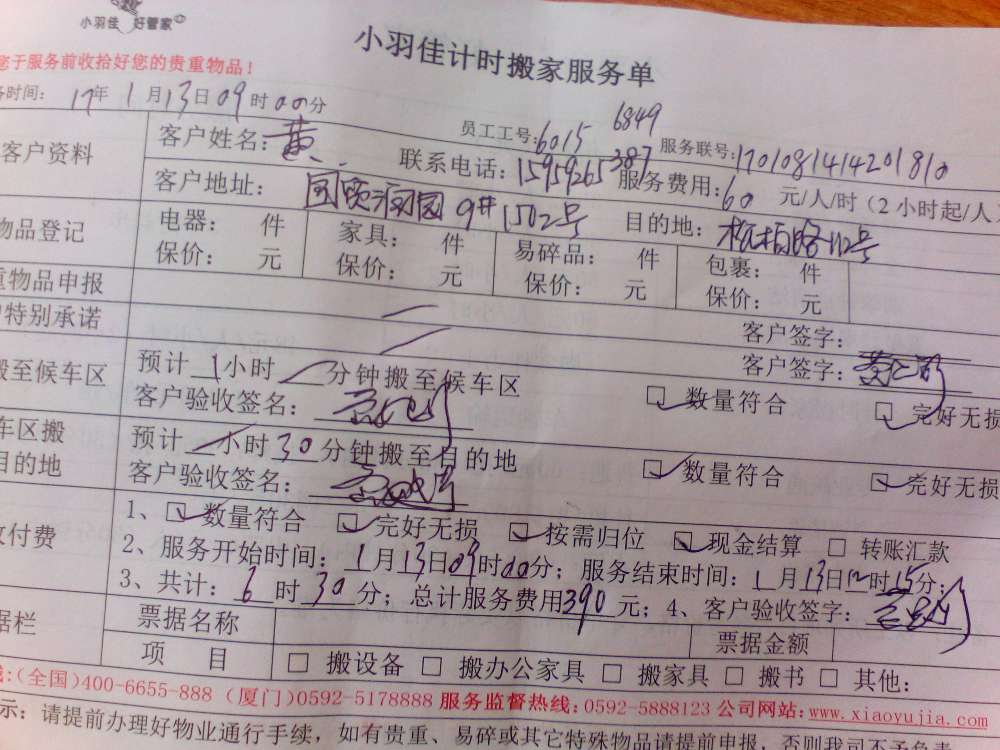 小羽佳 好管家
小羽佳计时搬家服务单
您于服务前收拾好您的贵重物品！
务时间：17年1月13日09时00分
员工工号：6015 6849 服务联号：1701081414201810
客户资料 客户姓名：黄 联系电话：15959265387 服务费用：60元/人/时（2小时起/人
客户地址：国贸润园9#1502号 目的地：松柏路112号
物品登记 电器： 件 家具： 件 易碎品： 件 包裹： 件
保价： 元 保价： 元 保价： 元 保价： 元
重物品申报 客户签字：
特别承诺 客户签字：
搬至候车区 预计1小时 分钟搬至候车区 数量符合 完好无损
客户验收签名：
车区搬 预计 小时30分钟搬至目的地 数量符合 完好无损
目的地 客户验收签名：
付费 1、数量符合 完好无损 按需归位 现金结算 转账汇款
2、服务开始时间：1月13日09时00分；服务结束时间：1月13日12时15分；
3、共计：6时30分；总计服务费用390元；4、客户验收签字：
据栏 票据名称 票据金额
项 目 搬设备 搬办公家具 搬家具 搬书 其他：
线：(全国)400-6655-888 (厦门)0592-5178888 服务监督热线：0592-5888123 公司网站：www.xiaoyujia.com
示：请提前办理好物业通行手续，如有贵重、易碎或其它特殊物品请提前申报，否则我司不予负责